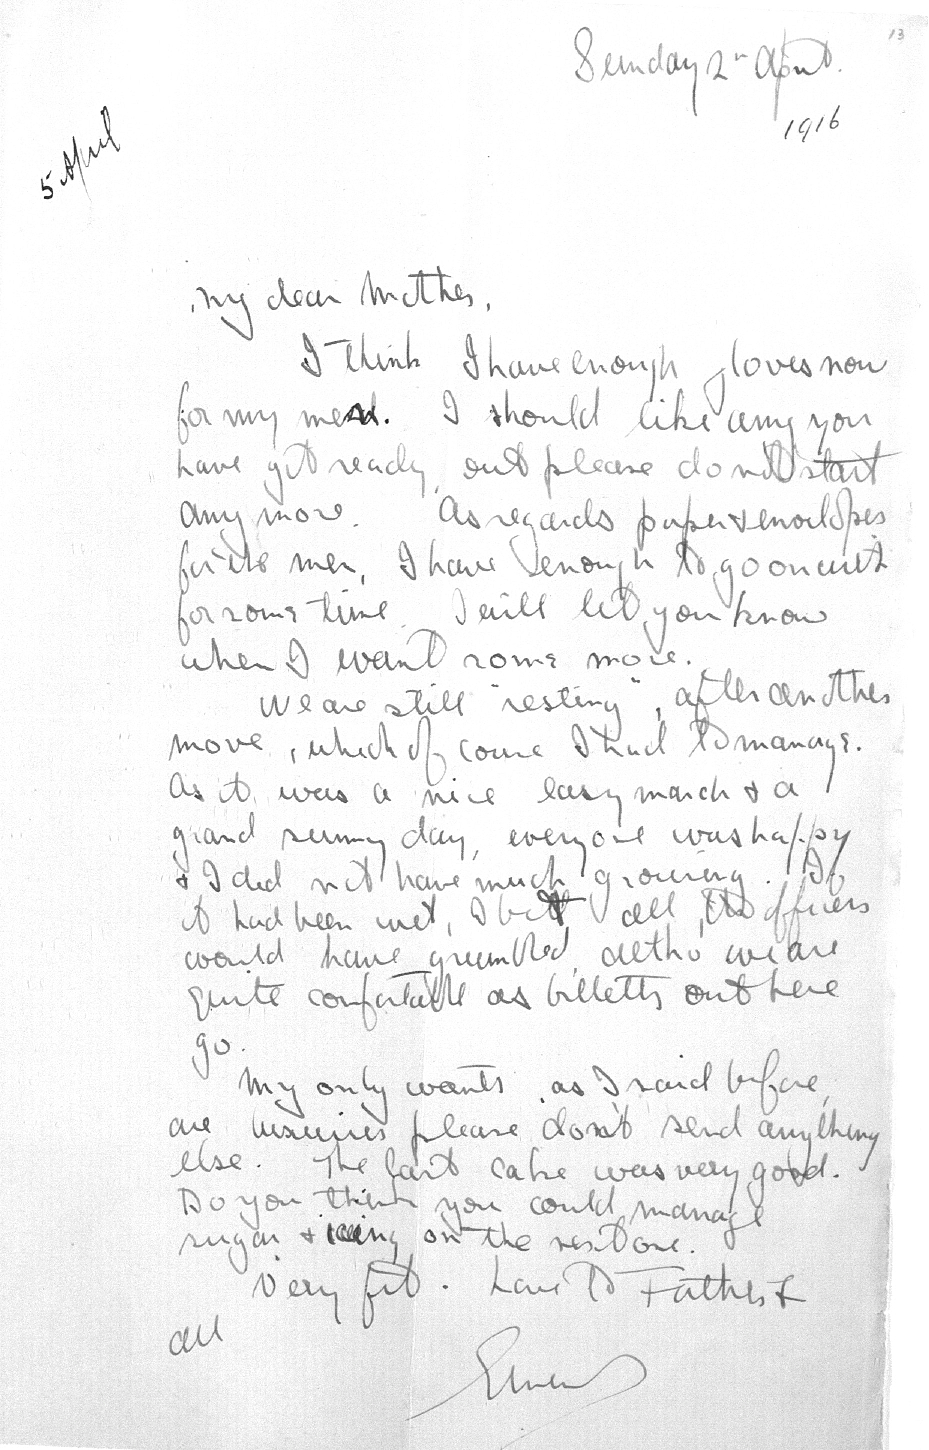 13
Sunday 2nd April.
1916
5 April
My dear Mother,
I think I have enough gloves now
for my men. I should like any you
have got ready, but please do not start
any more. As regards paper & envelopes
for the men, I have enough to go on with
for some time. I will let you know
when I want some more.
We are still "resting", after another
move, which of course I had to manage.
As it was a nice easy march & a
grand sunny day, everyone was happy
& I did not have much grousing. If
it had been wet, I bet all the officers
would have grumbled, altho' we are
quite comfortable as billetts out here
go.
My only wants, as I said before,
are luxuries please don't send anything
else. The last cake was very good.
Do you think you could manage
sugar & icing on the next one.
Very fit. Love to Father &
all